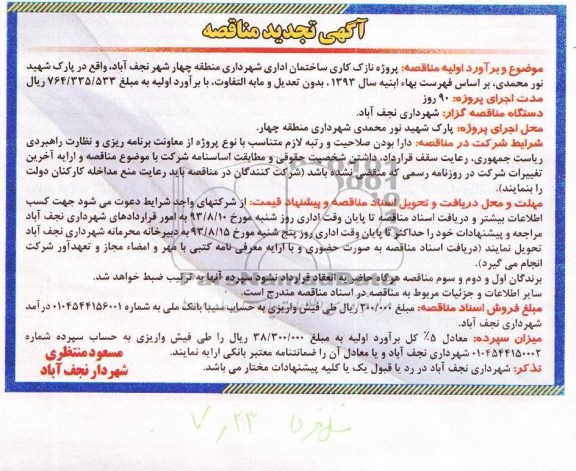 آگهی تجدید مناقصه
موضوع و برآورد اولیه مناقصه: پروژه نازک کاری ساختمان اداری شهرداری منطقه چهار شهر نجف آباد، واقع در پارک شهید
نور محمدی، بر اساس فهرست بهاء ابنیه سال ۱۳۹۳ ، بدون تعدیل و مابه التفاوت، با برآورد اولیه به مبلغ ۷۶۴/۳۳۵/۵۳۳ ریال
مدت اجرای پروژه: ۹۰ روز
دستگاه مناقصه گزار: شهرداری نجف آباد.
محل اجرای پروژه: پارک شهید نور محمدی شهرداری منطقه چهار.
شرایط شرکت در مناقصه: دارا بودن صلاحیت و رتبه لازم متناسب با نوع پروژه از معاونت برنامه ریزی و نظارت راهبردی
ریاست جمهوری، رعایت سقف قرارداد، داشتن شخصیت حقوقی و مطابقت اساسنامه شرکت با موضوع مناقصه و ارایه آخرین
تغییرات شرکت در روزنامه رسمی که منقضی نشده باشد (شرکت کنندگان در مناقصه باید رعایت منع مداخله کارکنان دولت
را بنمایند).
مهلت و محل دریافت و تحویل اسناد مناقصه و پیشنهاد قیمت: از شرکتهای واجد شرایط دعوت می شود جهت کسب
اطلاعات بیشتر و دریافت اسناد مناقصه تا پایان وقت اداری روز شنبه مورخ ۹۳/۸/۱۰ به امور قراردادهای شهرداری نجف آباد
مراجعه و پیشنهادات خود را حداکثر تا پایان وقت اداری روز پنج شنبه مورخ ۹۳/۸/۱۵ به دبیرخانه محرمانه شهرداری نجف آباد
تحویل نمایند (دریافت اسناد مناقصه به صورت حضوری و با ارایه معرفی نامه کتبی با مهر و امضاء مجاز و تعهدآور شرکت
انجام می گیرد).
برندگان اول و دوم و سوم مناقصه هرگاه حاضر به انعقاد قرارداد نشود سپرده آنها به ترتیب ضبط خواهد شد.
سایر اطلاعات و جزئیات مربوط به مناقصه در اسناد مناقصه مندرج است.
مبلغ فروش اسناد مناقصه: مبلغ ۳۰۰/۰۰۰ ریال طی فیش واریزی به حساب سیبا بانک ملی به شماره ۰۱۰۴۵۴۴۱۵۶۰۰۱ درآمد
شهرداری نجف آباد.
میزان سپرده: معادل ۵٪ کل برآورد اولیه به مبلغ ۳۸/۳۰۰/۰۰۰ ریال را طی فیش واریزی به حساب سپرده شماره
۰۱۰۴۵۴۴۱۵۰۰۰۲ شهرداری نجف آباد و یا معادل آن را ضمانتنامه معتبر بانکی ارایه نمایند.
تذکر: شهرداری نجف آباد در رد یا قبول یک یا کلیه پیشنهادات مختار می باشد.
مسعود منتظری
شهردار نجف آباد
۷٫۲۳